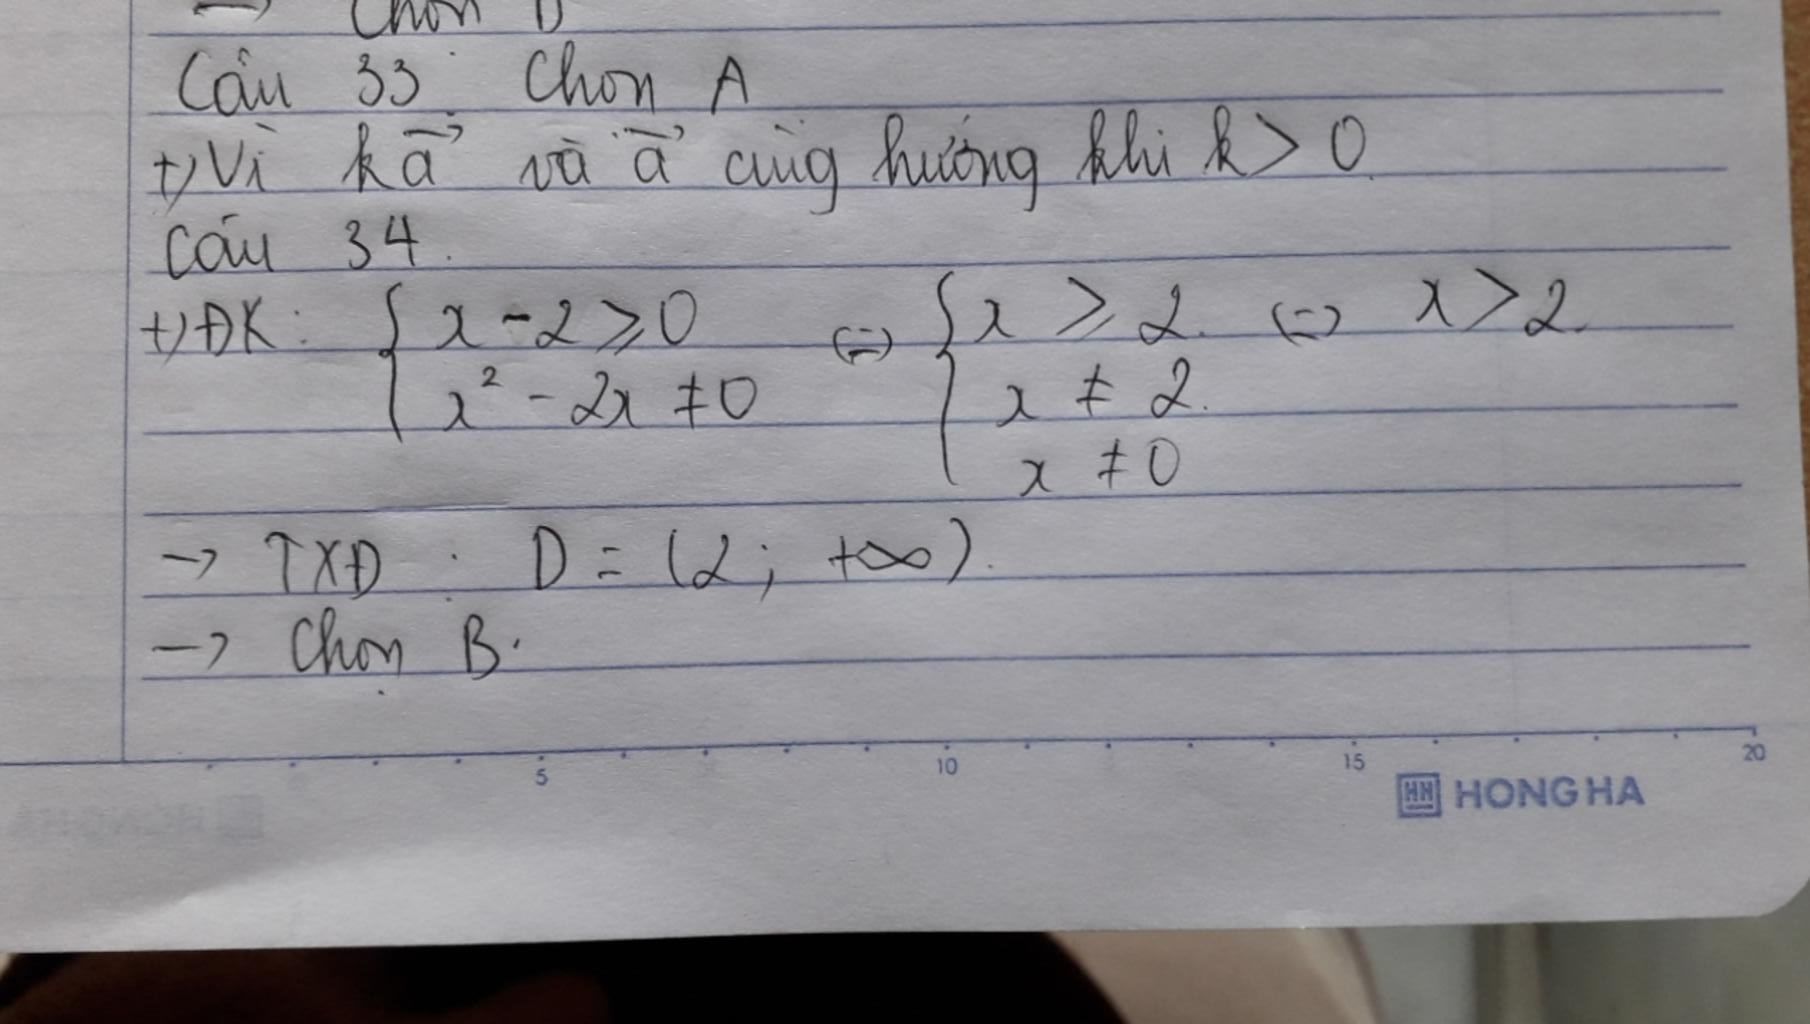 → Chọn D
Câu 33 Chọn A
+) Vì k\vec{a} và \vec{a} cùng hướng khi k > 0.
Câu 34.
+) ĐK: { x - 2 ⩾ 0 (=) { x ⩾ 2. (=) x > 2.
x² - 2x ≠ 0 x ≠ 2.
x ≠ 0
→ TXĐ : D = (2; +∞).
→ Chọn B.
5 10 15 20
HH HONG HA